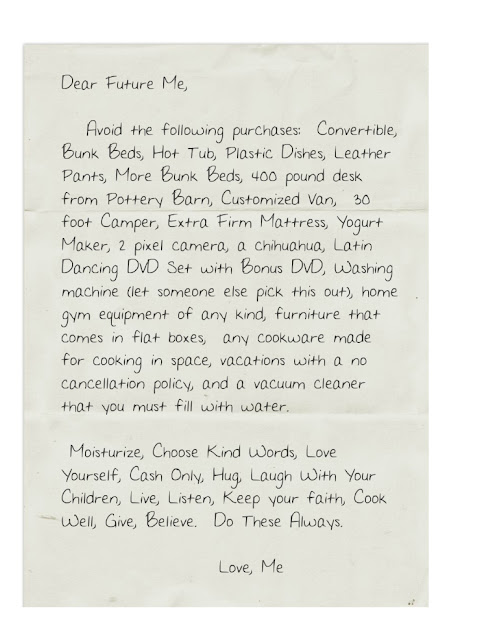 Dear Future Me,
Avoid the following purchases: Convertible,
Bunk Beds, Hot Tub, Plastic Dishes, Leather
Pants, More Bunk Beds, 400 pound desk
from Pottery Barn, Customized Van, 30
foot Camper, Extra Firm Mattress, Yogurt
Maker, 2 pixel camera, a chihuahua, Latin
Dancing DVD Set with Bonus DVD, Washing
machine (let someone else pick this out), home
gym equipment of any kind, furniture that
comes in flat boxes, any cookware made
for cooking in space, vacations with a no
cancellation policy, and a vacuum cleaner
that you must fill with water.
Moisturize, Choose Kind Words, Love
Yourself, Cash Only, Hug, Laugh With Your
Children, Live, Listen, Keep your faith, Cook
Well, Give, Believe. Do These Always.
Love, Me